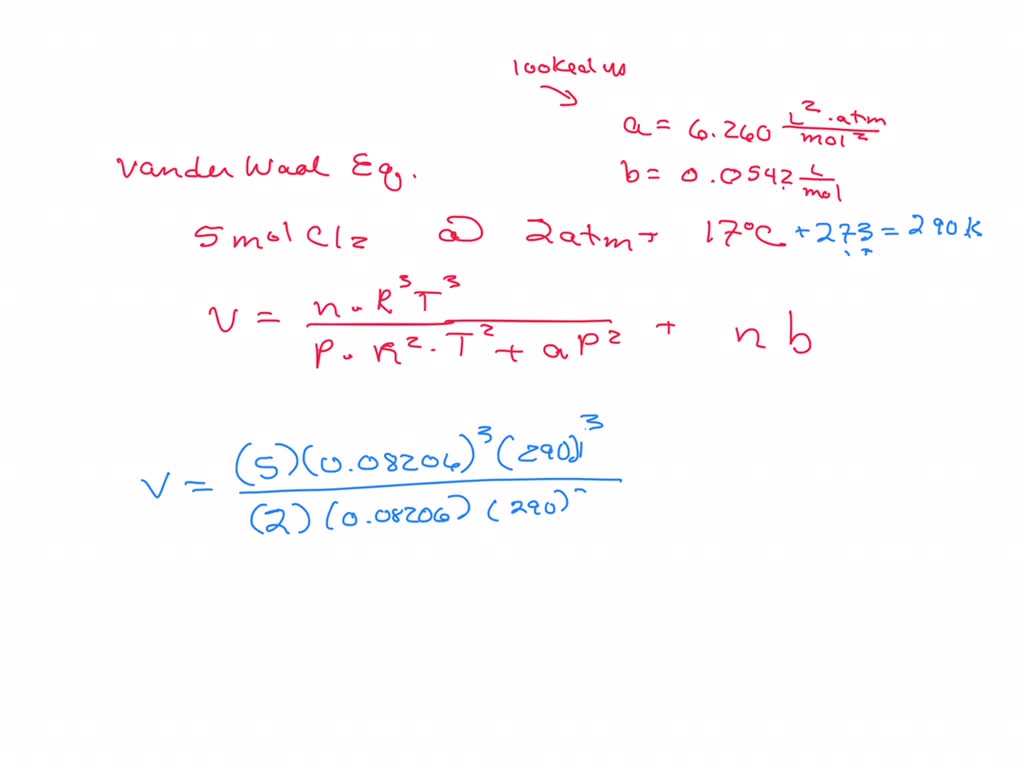 looked up
a = 6.260 L².atm/mol²
VanderWaal Eq.
b = 0.0542 L/mol
5 mol Cl2 @ 2atm + 17°C + 273 = 290K
V = n.R³T³/P.R².T² + aP² + nb
V = (5)(0.08206)³(290)³/(2)(0.08206)(290)²